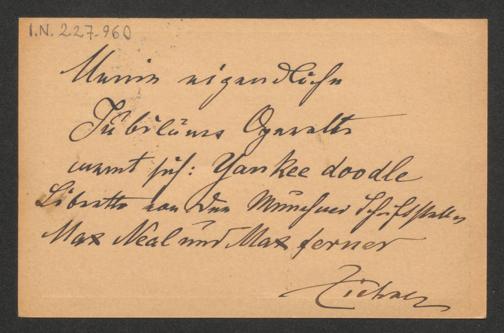 I.N. 227.960
Meine eigendliche
Jubiläums Operette
nennt sich: Yankee doodle
Libretto von den Münchner Schriftsteller
Max Neal und Max ferner
Ziehrer